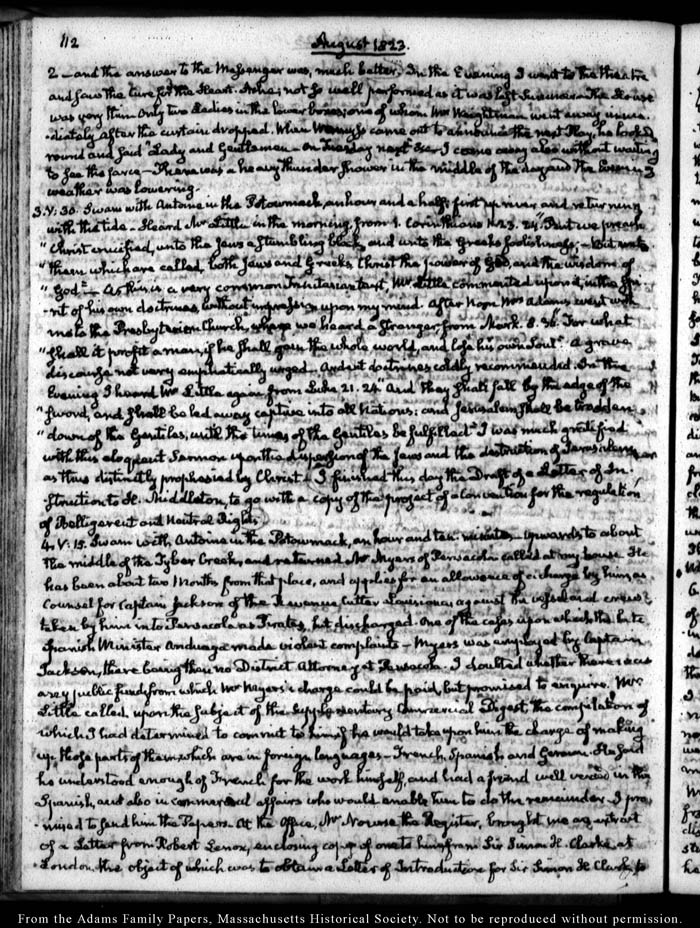 112 August 1823.
2 — and the answer to the Messenger was, much better. In the Evening I went to the theatre
and saw the Cure for the Heart-Ache; not so well performed as it was last Summer. The House
was very thin. Only two Ladies in the lower boxes; one of whom Mrs Weightman went away imme-
diately after the curtain dropped. When Wemyss came out to announce the next Play, he looked
round and said "Lady and Gentlemen — on Tuesday next &c. I came away also without waiting
to see the farce — There was a heavy thunder shower in the middle of the day and the Evening
weather was lowering.
3. V: 30. Swam with Antoine in the Potowmack, an hour and a half; first up river, and returning
with the tide — Heard Mr Little in the morning from 1. Corinthians 1. 23. 24. "But we preach
"Christ crucified, unto the Jews a stumbling block, and unto the Greeks foolishness; — But unto
"them which are called, both Jews and Greeks Christ the power of God, and the wisdom of
"God" — As this is a very common Trinitarian text, Mr Little commented upon it, in the
of his own doctrines, without impression upon my mind. After Noon Mrs Adams went with
me to the Presbyterian Church, where we heard a Stranger, from Mark. 8. 36. "For what
"shall it profit a man, if he shall gain the whole world, and lose his own Soul". A grave
discourse not very emphatically urged — And doctrines coldly recommended. In the
Evening I heard Mr Little again from Luke. 21. 24. "And they shall fall by the edge of the
"sword, and shall be led away captive into all Nations: and Jerusalem shall be trodden
"down of the Gentiles, until the times of the Gentiles be fulfilled" I was much gratified
with this eloquent Sermon upon the dispersion of the Jews and the destruction of Jerusalem
as thus distinctly prophesied by Christ — I finished this day the Draft of a Letter of In-
struction to H. Middleton, to go with a copy of the project of a convention for the regulation
of Belligerent and Neutral Rights
4. V: 15. Swam with Antoine in the Potowmack, an hour and ten minutes — upwards to about
the middle of the Tyber Creek, and returned. Mr Myers of Pensacola called at my house. He
has been about two Months from that place, and applies for an allowance of a charge by him as
Counsel for Captain Jackson of the Revenue Cutter Louisiana, against the vessel and crews
taken by him into Pensacola as Pirates, but discharged. One of the cases upon which the late
Spanish Minister Anduaga made violent complaints — Myers was employed by Captain
Jackson, there being then no District Attorney at Pensacola. I doubted whether there was
any public fund from which Mr Myers's charge could be paid, but promised to enquire. Mr
Little called, upon the subject of the supplementary Commercial Digest, the compilation of
which I had determined to commit to him if he would take upon him the charge of making
up those parts of them which are in foreign languages — French, Spanish and German. He said
he understood enough of French for the work himself, and had a friend well versed in the
Spanish, and also in commercial affairs who would enable him to do the remainder — I pro-
mised to send him the Papers. At the Office, Mr Nourse the Register, brought me an extract
of a Letter from Robert Lenox, enclosing copy of one to him from Sir Simon H. Clarke, at
London. the object of which was to obtain a Letter of Introduction for Sir Simon H. Clarke to
From the Adams Family Papers, Massachusetts Historical Society. Not to be reproduced without permission.